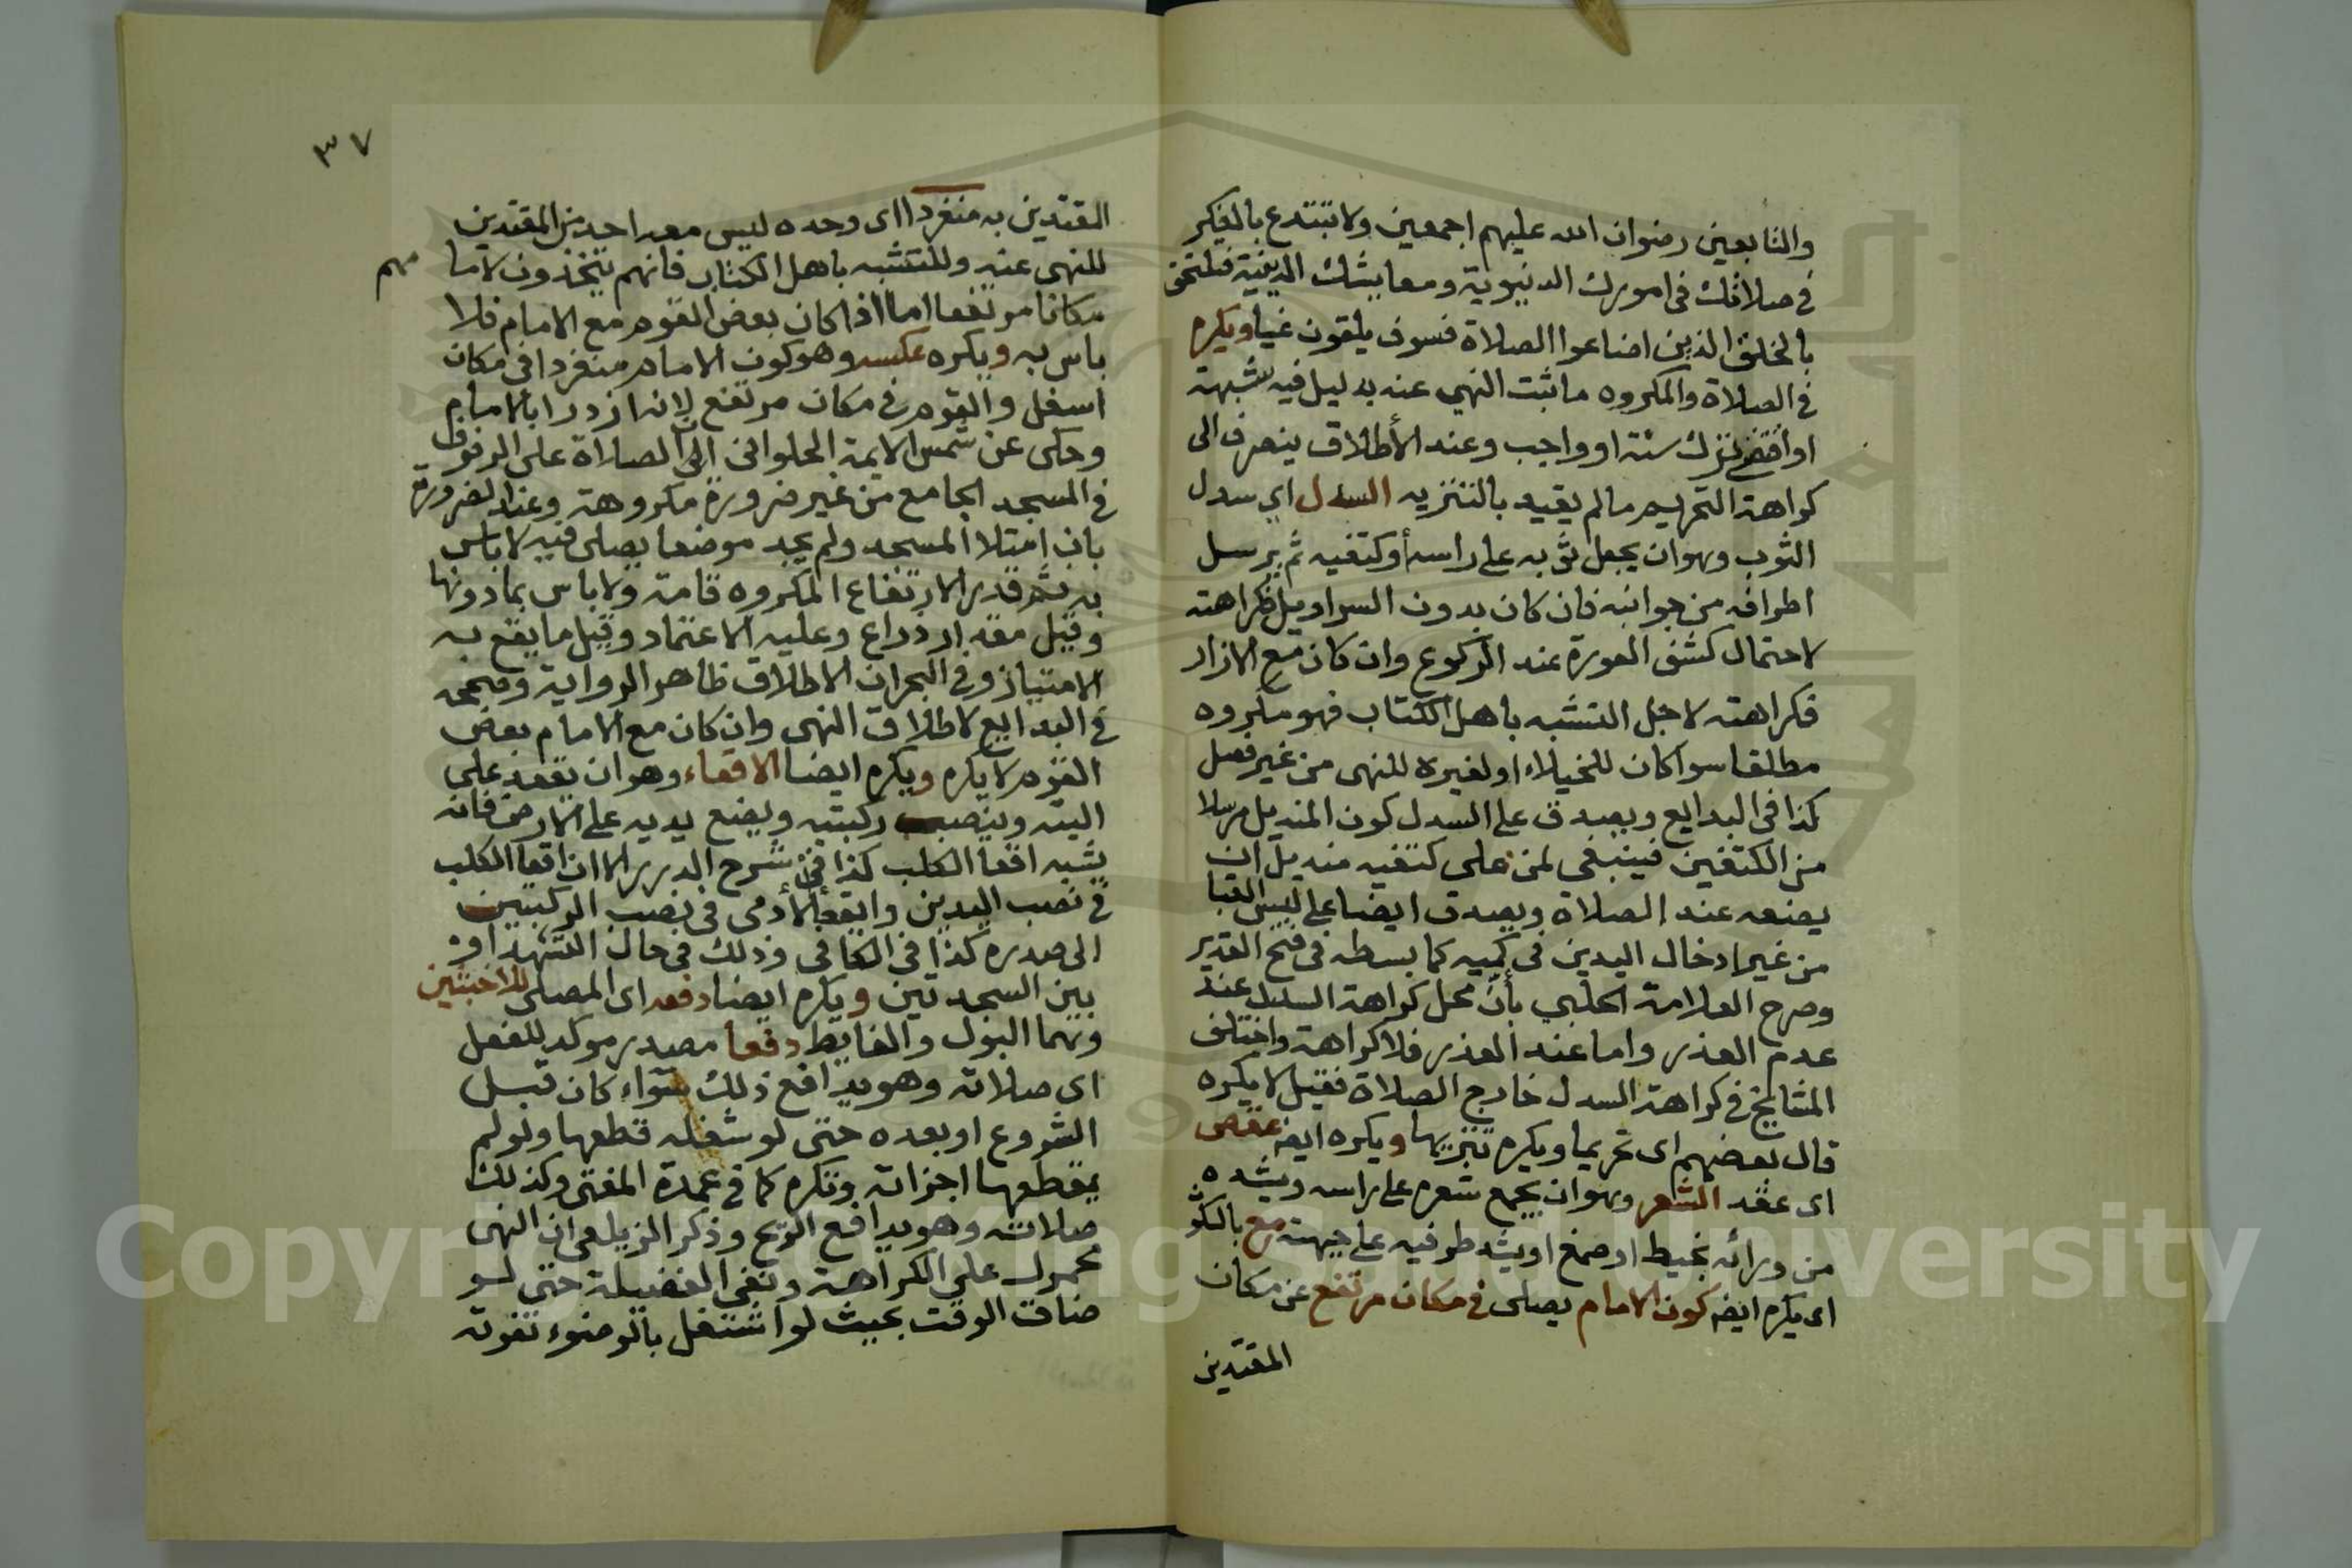 والتابعين رضوان الله عليهم اجمعين ولا تبتدع بالفكر
في صلاتك في امورك الدنيوية ومعايشك الدينية فتلتحق
بالخلف الذين اضاعوا الصلاة فسوف يلقون غيا ويكره
في الصلاة والمكروه ما ثبت النهي عنه بدليل فيه شبهة
او اقتضى ترك سنة او واجب وعند الأطلاق ينصرف الى
كراهة التحريم ما لم يقيد بالتنزيه السدل اي سدل
الثوب وهو ان يجعل ثوبه على راسه أو كتفيه ثم يرسل
اطرافه من جوانبه فان كان بدون السراويل فكراهته
لاحتمال كشف العورة عند الركوع وان كان مع الازار
فكراهته لاجل التشبه باهل الكتاب فهو مكروه
مطلقا سوا كان للخيلاء او لغيره للنهى من غير فصل
كذا في البدايع ويصدق على السدل كون المنديل مرسلا
من الكتفين فينبغي لمن على كتفيه منديل ان
يضعه عند الصلاة ويصدق ايضا على لبس القبا
من غير ادخال اليدين في كميه كما بسطه في فتح القدير
وصرح العلامة الحلبي بأن محل كراهة السدل عند
عدم العذر واما عند العذر فلا كراهة واختلف
المشايخ في كراهة السدل خارج الصلاة فقيل لا يكره
قال بعضهم اى تحريما ويكره تنزيها ويكره ايضا عقص
اى عقد الشعر وهو ان يجمع شعره على راسه ويشده
من ورائه بخيط او صمغ او يشد طرفيه على جبهته مع بالكو
اى يكره ايضا كون الامام يصلى في مكان مرتفع عن مكان
المقتدين
٣٧
المقتدين به منفردا اى وحده ليس معه احد من المقتدين
للنهى عنه وللتشبه باهل الكتاب فانهم يتخذون لاما مهم
مكانا مرتفعا اما اذا كان بعض القوم مع الامام فلا
باس به ويكره عكسه وهو كون الامام منفردا في مكان
اسفل والقوم في مكان مرتفع لانه ازدرا بالامام
وحكى عن شمس الايمة الحلوانى ان الصلاة على الرفوف
في المسجد الجامع من غير ضرورة مكروهة وعند الضرورة
بان امتلا المسجد ولم يجد موضعا يصلى فيه لا باس
به ثم قدر الارتفاع المكروه قامة ولا باس بما دونها
وقيل مقدار ذراع وعليه الاعتماد وقيل ما يقع به
الامتياز وفي البحر ان الاطلاق ظاهر الرواية وصححه
في البدايع لاطلاق النهى وان كان مع الامام بعض
القوم لا يكره ويكره ايضا الاقعاء وهو ان يقعد على
اليته وينصب ركبتيه ويضع يديه على الارض فانه
يشبه اقعا الكلب كذا في شرح الدرر الا ان اقعا الكلب
في نصب اليدين واقعأ الأدمى في نصب الركبتين
الى صدره كذا في الكافى وذلك في حال التشهد او
بين السجدتين ويكره ايضا دفعه اى المصلى للاخبثين
وهما البول والغايط دفعا مصدر موكد للفعل
اى صلاته وهو يدافع ذلك سواء كان قبل
الشروع او بعده حتى لو شغله قطعها ولو لم
يقطعها اجزاته وتكره كما في عمدة المفتى وكذلك
صلاته وهو يدافع الريح وذكر الزيلعى ان النهى
محمول على الكراهة ونفى الفضيلة حتى لو
ضاق الوقت بحيث لو اشتغل بالوضوء تفوته
Copyright © King Saud University